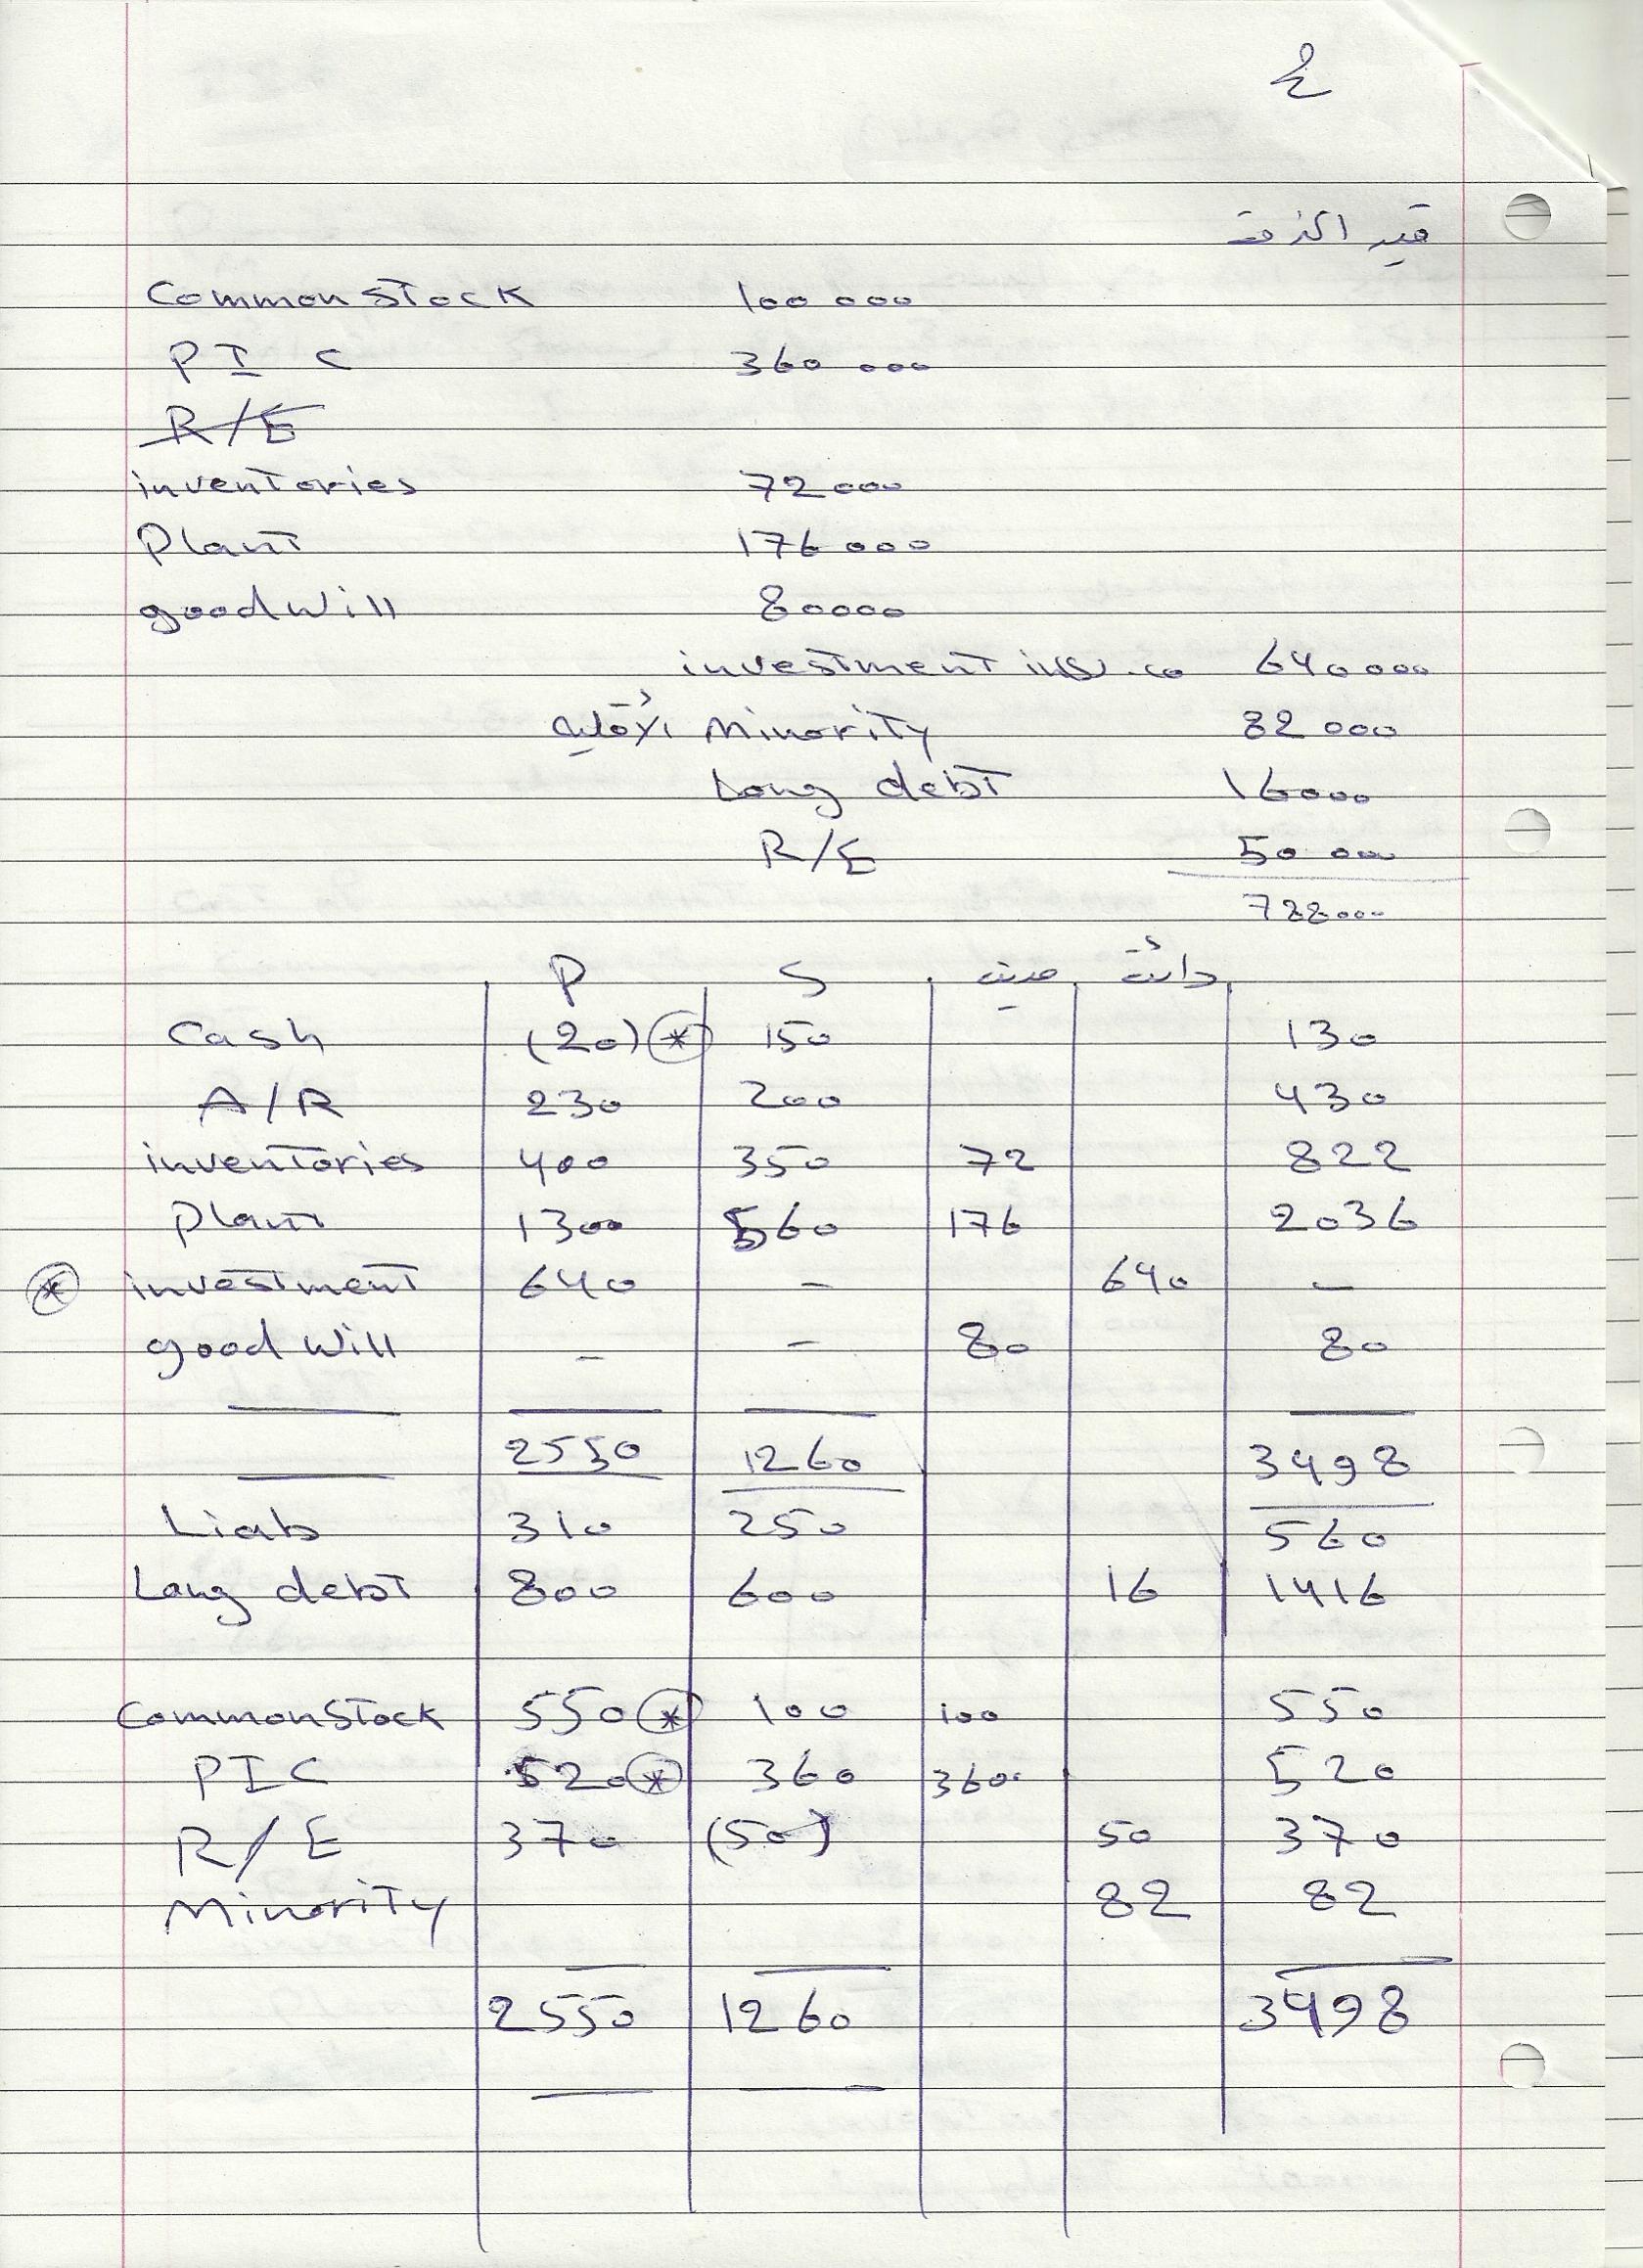 ٤
قيد الحذف
Common Stock 100 000
P I C 360 000
R/E
inventories 72000
Plant 176 000
good Will 80000
investment in S. co 640000
الأقلية Minority 82 000
Long debt 16000
R/E 50 000
788000
P S مدين دائن
Cash (20) * 150 130
A/R 230 200 430
inventories 400 350 72 822
Plant 1300 560 176 2036
* investment 640 - 640 -
good Will - - 80 80
2550 1260 3498
Liab 310 250 560
Long debt 800 600 16 1416
Common Stock 550 * 100 100 550
PIC 520 * 360 360 520
R/E 370 (50) 50 370
Minority 82 82
2550 1260 3498